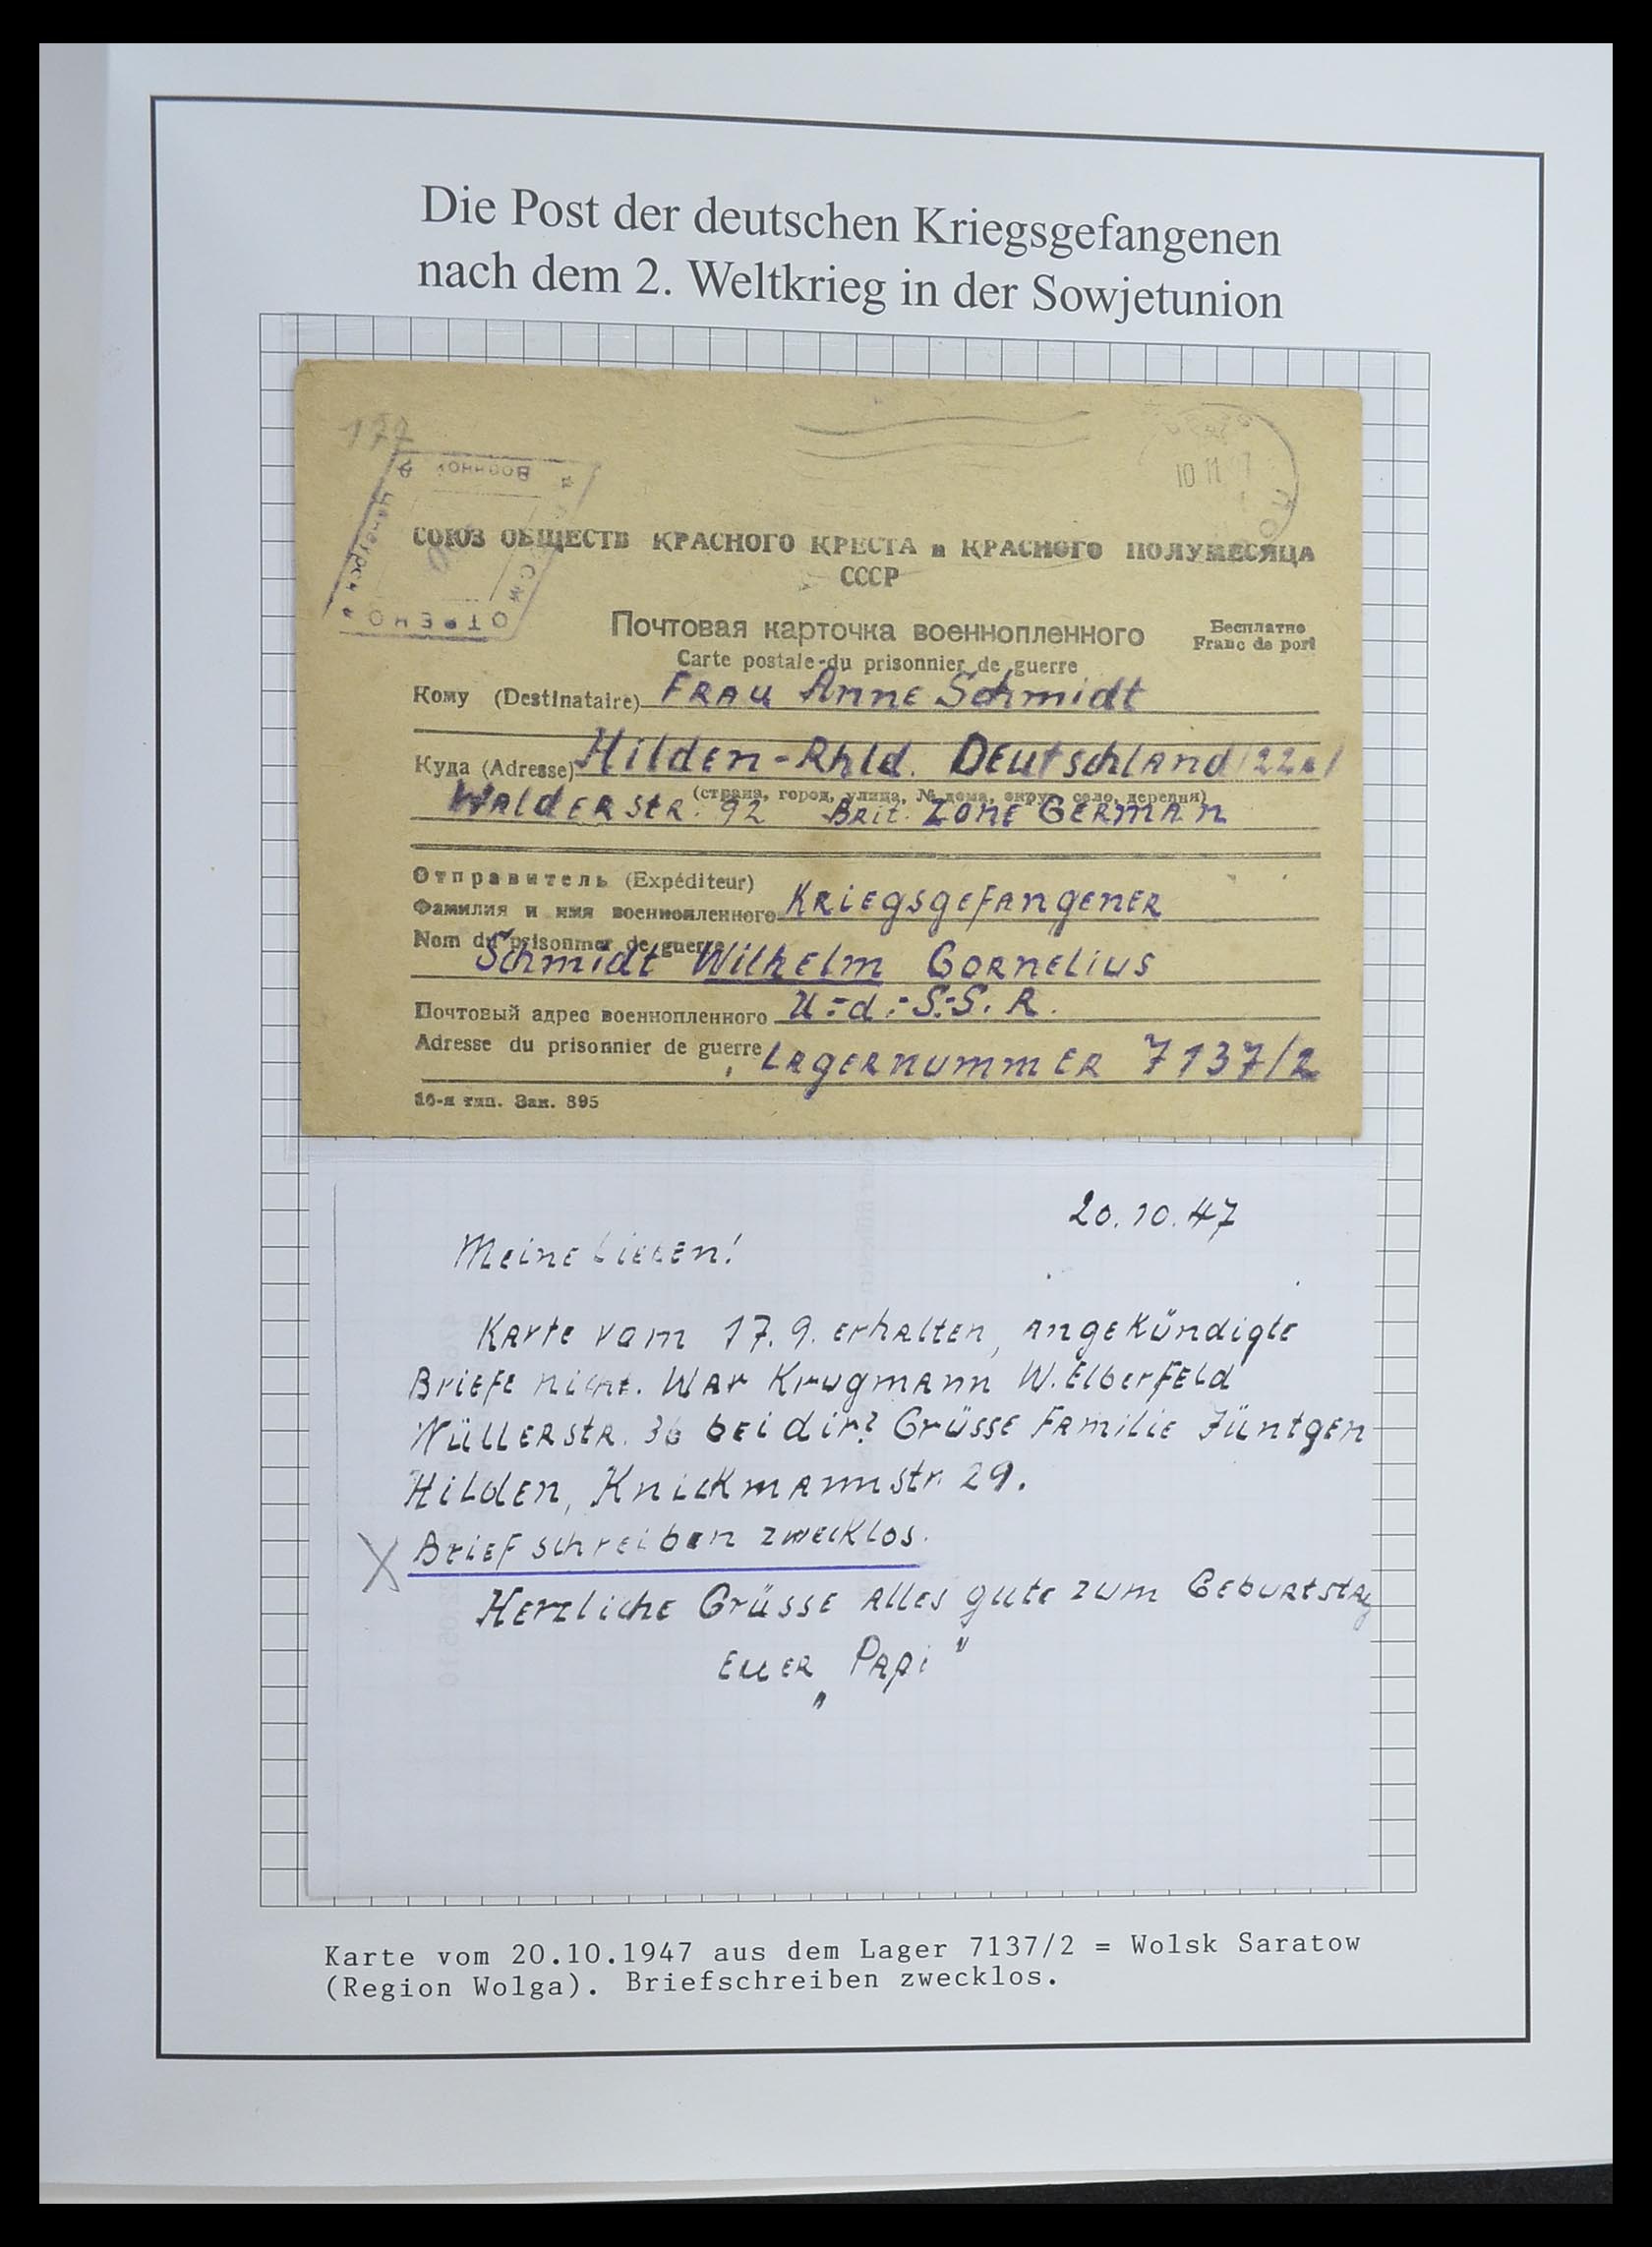 Die Post der deutschen Kriegsgefangenen
nach dem 2. Weltkrieg in der Sowjetunion
177
10 11
СОЮЗ ОБЩЕСТВ КРАСНОГО КРЕСТА и КРАСНОГО ПОЛУМЕСЯЦА
СССР
Почтовая карточка военнопленного
Бесплатно
Carte postale du prisonnier de guerre
Franc de port
Кому (Destinataire) Frau Anne Schmidt
Куда (Adresse) Hilden-Rhld. Deutschland 22a
(страна, город, улица, № дома, округ, село, деревня)
Walderstr. 92 Brit. Zone German
Отправитель (Expéditeur)
Фамилия и имя военнопленного Kriegsgefangener
Nom du prisonnier de guerre
Schmidt Wilhelm Cornelius
Почтовый адрес военнопленного U.-d.-S.-S. R.
Adresse du prisonnier de guerre Lagernummer 7137/2
16-я тип. Зак. 895
20.10.47
Meine Lieben!
Karte vom 17.9. erhalten, angekündigte
Briefe nicht. War Krugmann W. Elberfeld
Wüllerstr. 36 bei dir? Grüsse Familie Jüntgen
Hilden, Knickmannstr. 29.
X Briefschreiben zwecklos.
Herzliche Grüsse Alles gute zum Geburtstag
Euer „Papi"
Karte vom 20.10.1947 aus dem Lager 7137/2 = Wolsk Saratow
(Region Wolga). Briefschreiben zwecklos.